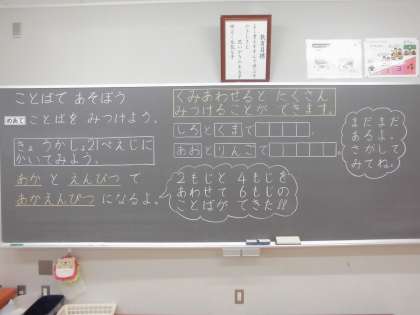 ことばで あそぼう
めあて ことばを みつけよう。
きょうかしょ21ぺえじに
かいてみよう。
あか と えんぴつ で
あかえんぴつ になるよ。
くみあわせると たくさん
みつけることが できます。
しろ と くま で
あお と りんご で
2もじと 4もじを
あわせて 6もじの
ことばが できた!!
まだまだ
あるよ。
さがして
みてね。
教育目標